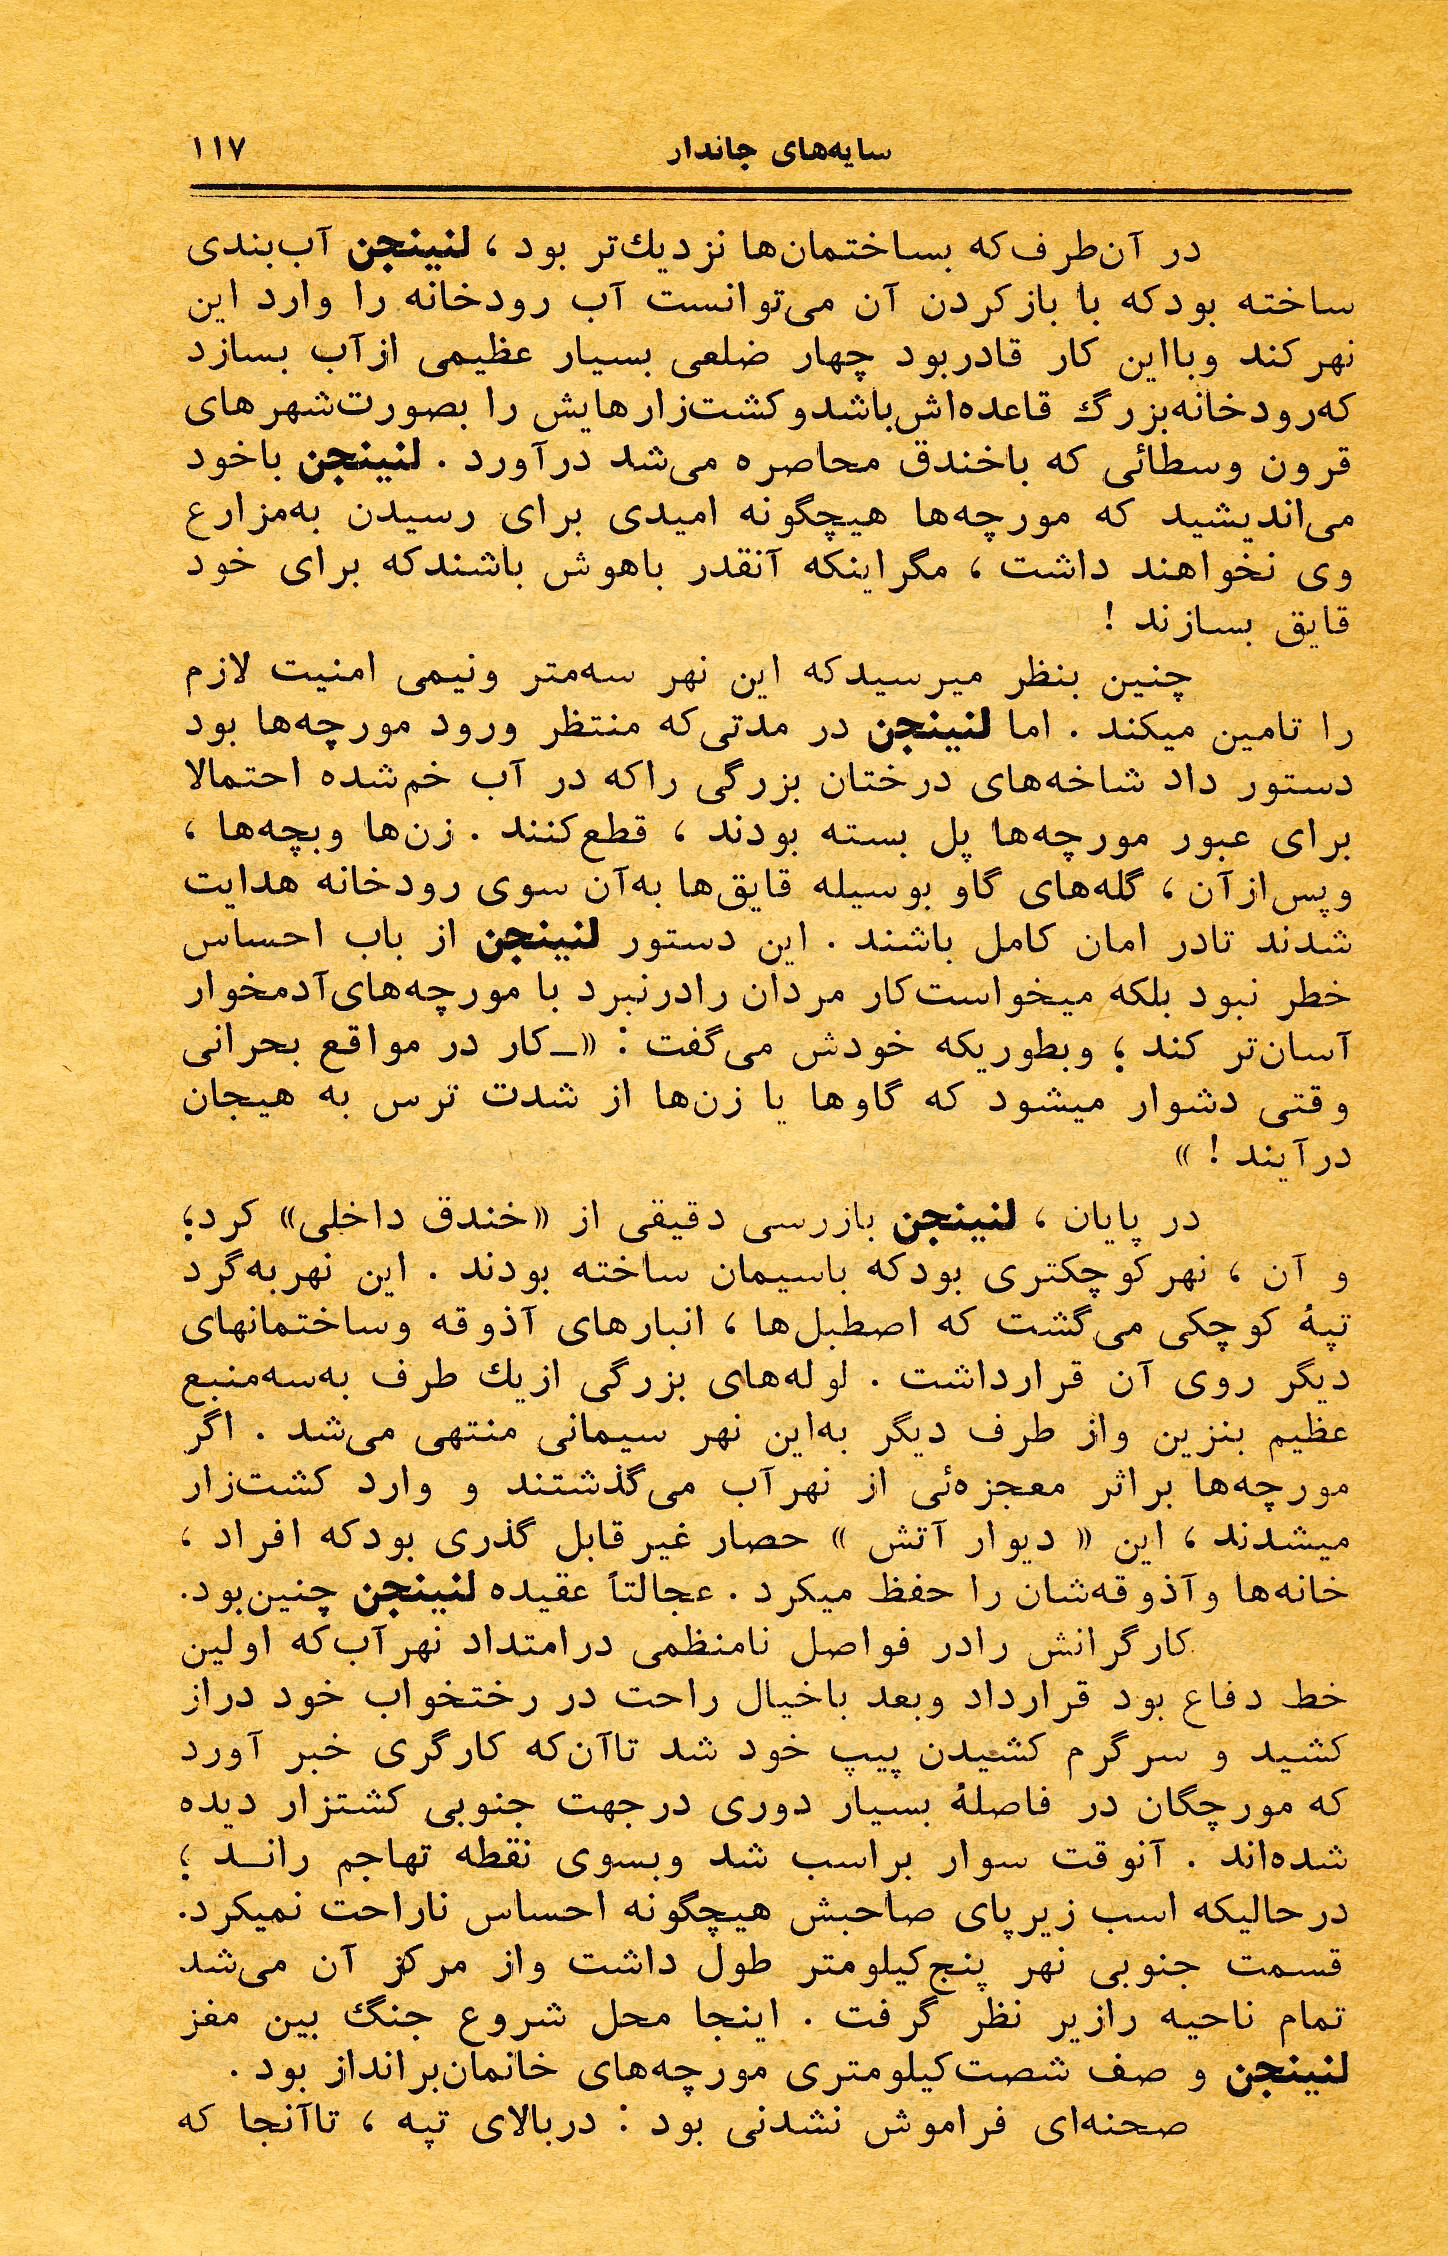 سایه‌های جاندار ۱۱۷
در آن‌طرف‌که بساختمان‌ها نزدیك‌تر بود ، لنینجن آب‌بندی
ساخته بودکه با بازکردن آن می‌توانست آب رودخانه را وارد این
نهرکند وبااین کار قادربود چهار ضلعی بسیار عظیمی ازآب بسازد
که‌رودخانه‌بزرگ قاعده‌اش‌باشدوکشت‌زارهایش را بصورت‌شهرهای
قرون وسطائی که باخندق محاصره می‌شد درآورد . لنینجن باخود
می‌اندیشید که مورچه‌ها هیچگونه امیدی برای رسیدن به‌مزارع
وی نخواهند داشت ، مگراینکه آنقدر باهوش باشندکه برای خود
قایق بسازند !
چنین بنظر میرسیدکه این نهر سه‌متر ونیمی امنیت لازم
را تامین میکند . اما لنینجن در مدتی‌که منتظر ورود مورچه‌ها بود
دستور داد شاخه‌های درختان بزرگی راکه در آب خم‌شده احتمالا
برای عبور مورچه‌ها پل بسته بودند ، قطع‌کنند . زن‌ها وبچه‌ها ،
وپس‌ازآن ، گله‌های گاو بوسیله قایق‌ها به‌آن سوی رودخانه هدایت
شدند تادر امان کامل باشند . این دستور لنینجن از باب احساس
خطر نبود بلکه میخواست‌کار مردان رادرنبرد با مورچه‌های‌آدمخوار
آسان‌تر کند ؛ وبطوریکه خودش می‌گفت : «ـ‌کار در مواقع بحرانی
وقتی دشوار میشود که گاوها یا زن‌ها از شدت ترس به هیجان
درآیند ! »
در پایان ، لنینجن بازرسی دقیقی از «خندق داخلی» کرد؛
و آن ، نهرکوچکتری بودکه باسیمان ساخته بودند . این نهربه‌گرد
تپهٔ کوچکی می‌گشت که اصطبل‌ها ، انبارهای آذوقه وساختمانهای
دیگر روی آن قرارداشت . لوله‌های بزرگی ازیك طرف به‌سه‌منبع
عظیم بنزین واز طرف دیگر به‌این نهر سیمانی منتهی می‌شد . اگر
مورچه‌ها براثر معجزه‌ئی از نهرآب می‌گذشتند و وارد کشت‌زار
میشدند ، این « دیوار آتش » حصار غیرقابل گذری بودکه افراد ،
خانه‌ها وآذوقه‌شان را حفظ میکرد . عجالتاً عقیده لنینجن چنین‌بود.
کارگرانش رادر فواصل نامنظمی درامتداد نهرآب‌که اولین
خط دفاع بود قرارداد وبعد باخیال راحت در رختخواب خود دراز
کشید و سرگرم کشیدن پیپ خود شد تاآن‌که کارگری خبر آورد
که مورچگان در فاصلهٔ بسیار دوری درجهت جنوبی کشتزار دیده
شده‌اند . آنوقت سوار براسب شد وبسوی نقطه تهاجم رانـد ؛
درحالیکه اسب زیرپای صاحبش هیچگونه احساس ناراحت نمیکرد.
قسمت جنوبی نهر پنج‌کیلومتر طول داشت واز مرکز آن می‌شد
تمام ناحیه رازیر نظر گرفت . اینجا محل شروع جنگ بین مغز
لنینجن و صف شصت‌کیلومتری مورچه‌های خانمان‌برانداز بود .
صحنه‌ای فراموش نشدنی بود : دربالای تپه ، تاآنجا که